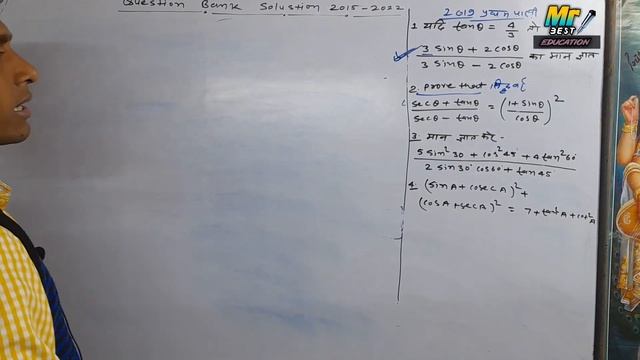 Question Bank Solustion 2015-2022
2019 प्रथम पाली
1. यदि tanθ = 4/3 तो
3 sinθ + 2 cosθ
3 sinθ - 2 cosθ
का मान ज्ञात
2. Prove that
secθ + tanθ / secθ - tanθ = (1 + sinθ / cosθ)²
3. मान ज्ञात करें -
5 sin²30 + cos²45 + 4 tan²60
2 sin30° cos60 + tan45
4. (sinA + cosecA)² +
(cosA + secA)² = 7 + tan²A + cot²A
Mr
BEST
EDUCATION